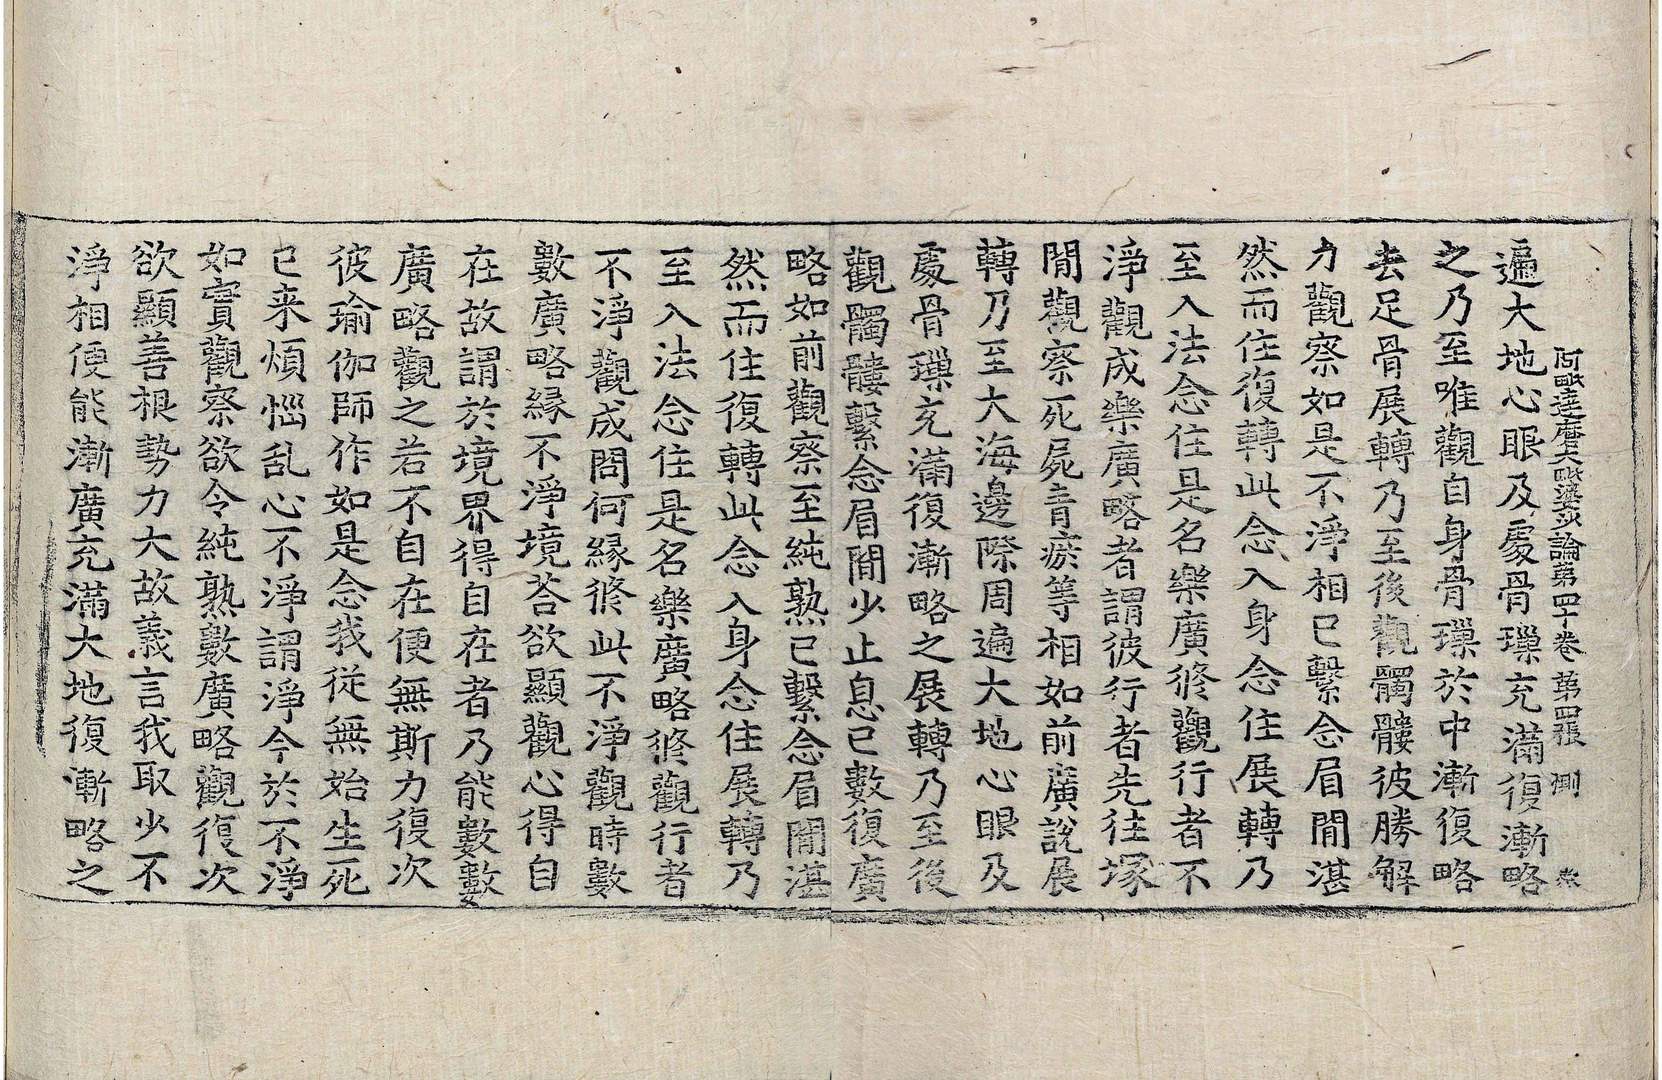 阿毗達磨大毗婆沙論第四十卷 第四張 惻
遍大地心眼及處骨璅充滿復漸略
之乃至唯觀自身骨璅於中漸復略
去足骨展轉乃至後觀髑髏彼勝解
力觀察如是不淨相已繫念眉閒湛
然而住復轉此念入身念住展轉乃
至入法念住是名樂廣修觀行者不
淨觀成樂廣略者謂彼行者先往塚
閒觀察死屍青瘀等相如前廣說展
轉乃至大海邊際周遍大地心眼及
處骨璅充滿復漸略之展轉乃至後
觀髑髏繫念眉閒少止息已數復廣
略如前觀察至純熟已繫念眉閒湛
然而住復轉此念入身念住展轉乃
至入法念住是名樂廣略修觀行者
不淨觀成問何緣修此不淨觀時數
數廣略緣不淨境荅欲顯觀心得自
在故謂於境界得自在者乃能數數
廣略觀之若不自在便無斯力復次
彼瑜伽師作如是念我從無始生死
已来煩惱乱心不淨謂淨今於不淨
如實觀察欲令純熟數廣略觀復次
欲顯善根勢力大故義言我取少不
淨相便能漸廣充滿大地復漸略之